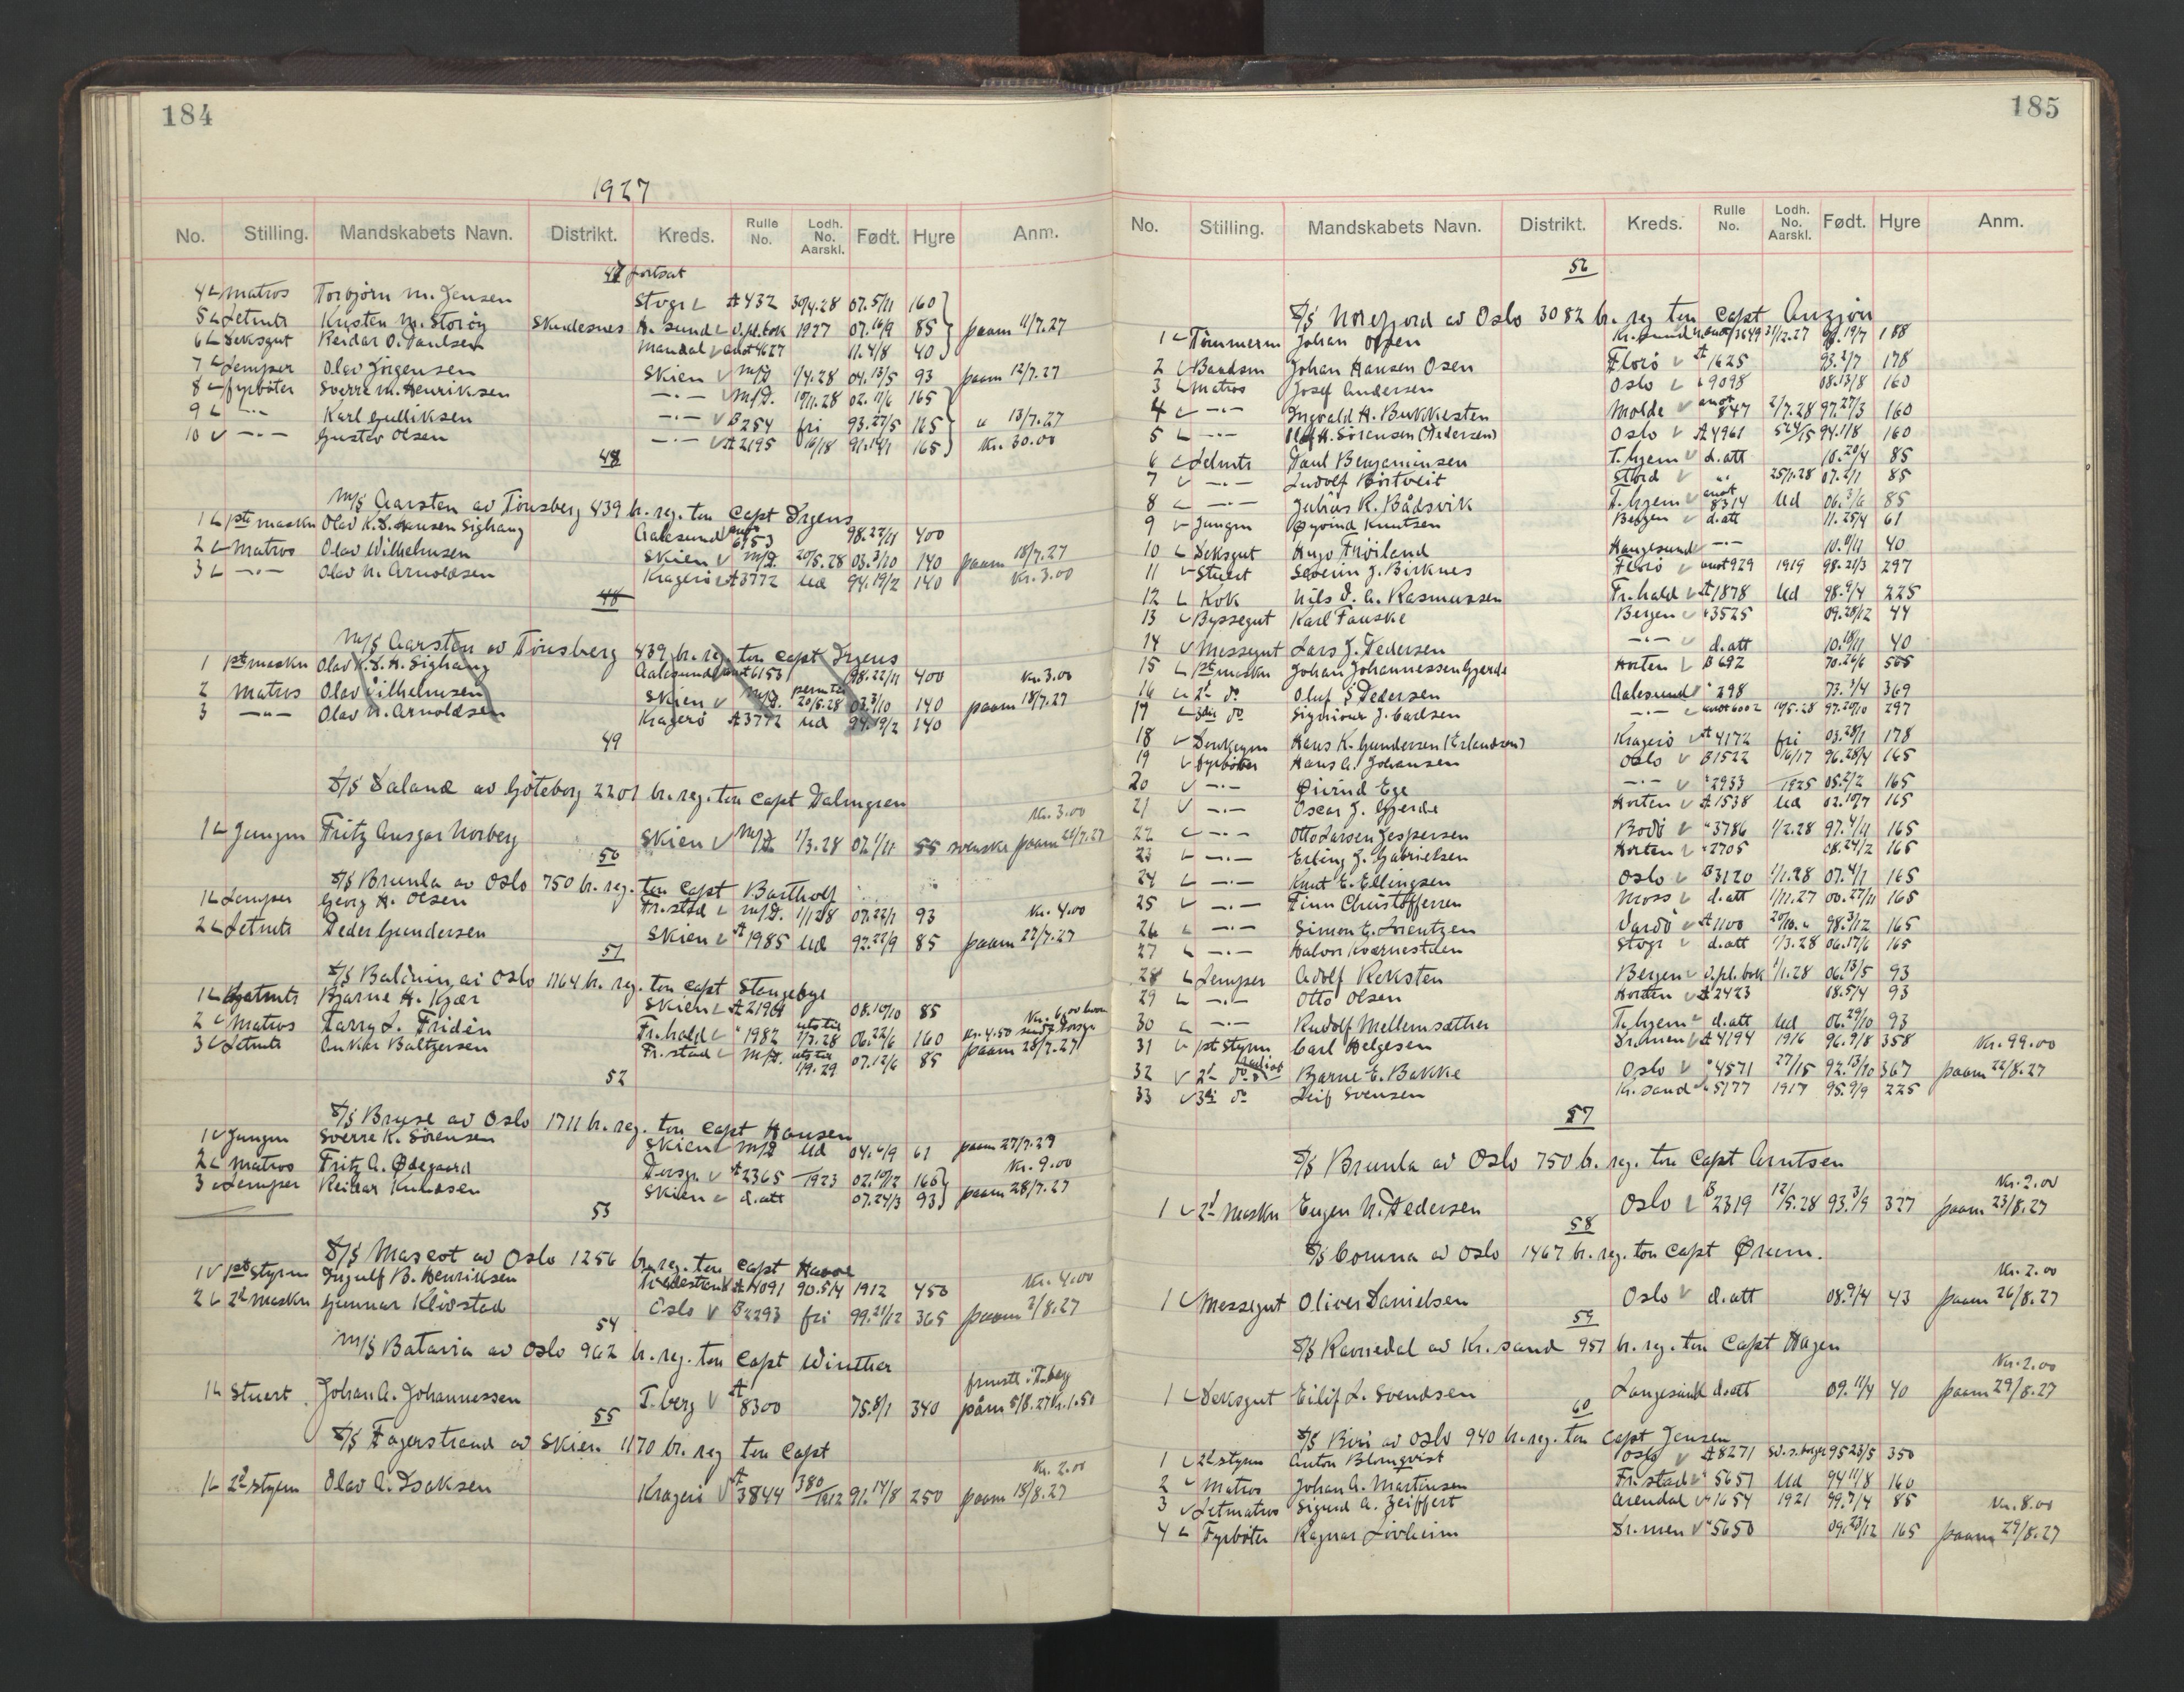 184
1927
No. Stilling. Mandskabets Navn. Distrikt. Kreds. Rulle No. Lodh. No. Aarskl. Født. Hyre Anm.
47 fortsat
4 Matros Torbjørn M. Jensen Stvgr A 432 30/4.28 07.5/11 160
5 Letmtr Kristen M. Storøy Skudesnes H.sund d.pl.bok 1927 07.16/9 85 paam 11/7.27
6 Deksgut Reidar O. Paulsen Mandal anot 4627 11.4/8 40
7 Lemper Olav Jörgensen Skien m/d 1/4.28 04.13/5 93 paam 12/7.27
8 fyrböter Sverre M. Henriksen —"— m/d. 10/11.28 02.11/6 165
9 —"— Karl Gulliksen —"— B 254 fri 93.27/5 165 " 13/7.27
10 —"— Gustav Olsen —"— A 2195 16/18 91.14/1 165 Kr. 30.00
48
M/S Aarsten av Tönsberg 439 br. reg. ton Capt Irgens
1 1ste maskn Olav K.S. Hansen Sighaug Aalesund anot 6153 98.22/11 400
2 Matros Olav Wilhelmsen Skien m/d. 20/5.28 03.3/10 140 paam 18/7.27
3 —"— Olav N. Arnoldsen Kragerö A 3772 Ud 94.19/2 140 Kr. 3.00
48
M/S Aarsten av Tönsberg 439 br. reg. ton Capt Irgens
1 1st maskn Olav K.S. H. Sighaug Aalesund anot 6153 98.22/11 400 Kr. 3.00
2 Matros Olav Wilhelmsen Skien m/d. 20/5.28 03.3/10 140 paam 18/7.27
3 —"— Olav N. Arnoldsen Kragerö A 3772 Ud 94.19/2 140
49
S/S Daland av Göteborg 2201 br. reg. ton Capt Dalmgren
Kr. 3.00
1 Jungm Fritz Ansgar Norberg Skien m/d 1/3.28 07.1/11 55 svenske paam 26/7.27
50
S/S Brunla av Oslo 750 br. reg. ton Capt Bartholf
1 Lemper Georg H. Olsen Fr.stad m/d. 1/1 28 07.22/1 93 Kr. 4.00
2 Letmtr Peder Gundersen Skien A 1985 Ud 92.22/9 85 paam 27/7.27
51
S/S Balduin av Oslo 1164 br. reg. ton Capt Stangebye
1 Letmtr Bjarne H. Kjær Skien A 2196 08.10/10 85
2 Matros Harry L. Fridén Fr.hald " 1982 uts til 1/7.28 06.22/6 160
3 Letmtr Baltzersen Fr.stad m/d. uts til 1/9.29 07.12/6 85 paam 28/7.27
52
S/S Bruse av Oslo 1711 br. reg. ton Capt Hansen
1 Jungm Sverre K. Sörensen Skien m/d Ud 04.6/9 61 paam 27/7.27
2 Matros Fritz A. Ødegaard Porsgr. A 2365 1923 02.10/12 166 Kr. 9.00
3 Lemper Reidar Knudsen Skien d.att 07.24/3 93 paam 28/7.27
53
S/S Mascot av Oslo 1256 br. reg. ton Capt Haave
1 1ste Styrm Ingulf B. Henriksen Tvedestrand A 4091 90.5/4 1912 450 Kr. 4.00
2 2d Maskn Gunnar Klövstad Oslo B 2293 fri 99.21/12 365 paam 2/8.27
54
M/S Batavia av Oslo 962 br. reg. ton Capt Winther
1 Stuert Johan A. Johannessen T.berg A 8300 75.8/1 340 påm 5/8.27 Kr. 1.50
55
S/S Fagerstrand av Skien 1170 br. reg ton Capt
Kr. 2.00
1 2d Styrm Olav A. Isaksen Kragerö A 3844 380/1912 91.14/8 250 paam 18/8.27
185
No. Stilling. Mandskabets Navn. Distrikt. Kreds. Rulle No. Lodh. No. Aarskl. Født. Hyre Anm.
56
S/S Norefjord av Oslo 3082 br. reg ton Capt Anzjön
1 Tömmerm Johan Olsen Kr.sund N. anot 3649 31/12.27 19/7 188
2 Baadsm Johan Hansen Osen Florö A 1625 93.2/7 178
3 Matros Josef Andersen Oslo " 9098 08.13/8 160
4 —"— Ingvald H. Bukkesten Molde anot 847 2/7.28 97.27/3 160
5 —"— Olaf H. Sörensen (Pedersen) Oslo A 4961 524/15 94.1/8 160
6 Letmtr Paul Benjaminsen T.hjem d.att 10.20/4 85
7 —"— Ludolf Börtveit Stord " 25/1.28 07.2/1 85
8 —"— Julius R. Bådsvik T.hjem anot 8314 Ud 06.3/6 85
9 Jungm Øyvind Knutsen Bergen d.att 11.25/4 61
10 Deksgut Hugo Fröiland Haugesund —"— 10.11/11 40
11 Stuert Severin J. Birknes Florö anot 929 1919 98.21/3 297
12 Kok Nils D. A. Rasmussen Fr.hald A 1878 Ud 98.9/4 225
13 Byssegut Karl Fauske Bergen " 3525 09.28/12 44
14 Messegut Lars J. Pedersen —"— d.att 10.18/11 40
15 1ste maskn Johan Johannessen Gjerde Horten B 692 70.26/6 505
16 2d do Oluf S Pedersen Aalesund " 298 73.3/4 369
17 3die do Sigvinur J. Carlsen —"— anot 6002 10/5.28 97.20/10 297
18 Donkeym Hans K. Gundersen (Erlandsen) Kragerö A 4172 fri 03.28/1 178
19 fyrböter Hans A. Johansen Oslo B 1522 16/17 96.28/4 165
20 —"— Öivind Ege —"— " 2933 1925 05.2/2 165
21 —"— Oscar J. Gjerde Horten A 1538 Ud 02.10/7 165
22 —"— Otto Larsen Jespersen Bodö " 3786 1/2.28 97.4/11 165
23 —"— Erling J. Gabrielsen Horten " 2705 08.24/2 165
24 —"— Knut E. Ellingsen Oslo B 3120 1/1.28 07.4/1 165
25 —"— Finn Christoffersen Moss d.att 1/11.27 00.27/11 165
26 —"— Simon E. Lorentzen Vardö A 1100 20/10. " 98.3/12 165
27 —"— Halvor Kvarnestalen Stvgr d.att 1/3.28 06.17/6 165
28 Lemper Adolf Reksten Bergen d.pl.bok 1/1.28 06.13/5 93
29 —"— Otto Olsen Horten A 2423 08.5/4 93
30 —"— Rudolf Mellemsæther T.hjem d.att Ud 06.29/10 93
31 1st Styrm Carl Helgesen Dr.men A 4194 1916 96.9/8 358 Kr. 99.00
32 2d do Radiot Bjarne E. Bakke Oslo " 4571 27/15 92.13/10 367 paam 22/8.27
33 3di do Leif Svensen Kr.sand " 5177 1917 95.9/9 225
57
S/S Brunla av Oslo 750 br. reg. ton Capt Arntsen
Kr. 2.00
1 2d Maskn Eugen N. Pedersen Oslo B 2319 12/5.28 93.3/9 327 paam 23/8.27
58
S/S Corona av Oslo 1467 br. reg. ton Capt Ørum.
Kr. 2.00
1 Messegut Oliver Danielsen Oslo d.att 08.9/4 43 paam 26/8.27
59
S/S Ravnedal av Kr.sand 951 br. reg. ton Capt Hagen
Kr. 2.00
1 Deksgut Eilif L. Svendsen Langesund d.att 09.11/4 40 paam 29/8.27
60
S/S Biri av Oslo 940 br. reg. ton Capt Jensen
1 2d Styrm Anton Blomqvist Oslo A 8271 sv.s.borger 95 23/5 350
2 Matros Johan A. Martinsen Fr.stad " 5651 Ud 94 11/8 160
3 Letmatros Sigurd A. Zeiffert Arendal " 1654 1921 99.9/4 85 Kr. 8.00
4 Fyrböter Ragnar Livheim Dr.men " 5650 09.23/12 165 paam 29/8.27